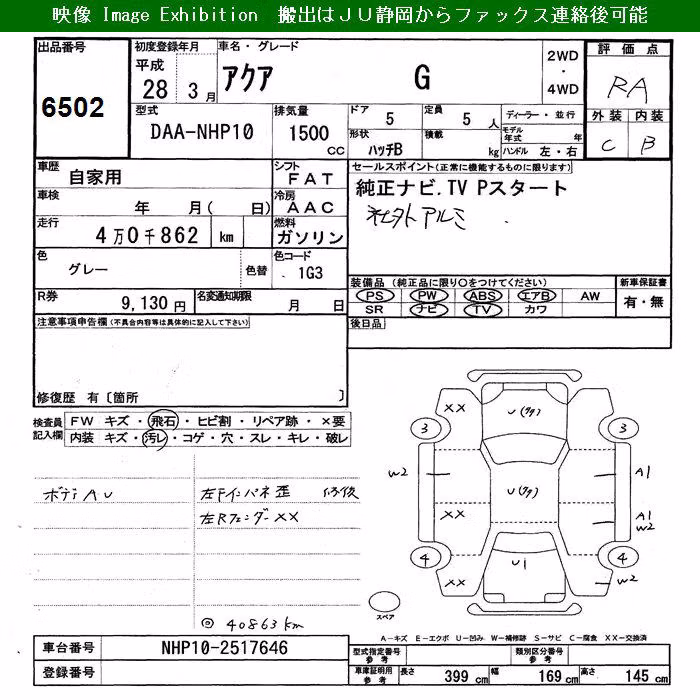 映像 Image Exhibition 搬出はＪＵ静岡からファックス連絡後可能
出品番号
6502
初度登録年月
平成
28 3 月
車名・グレード
アクア G
2WD
・
4WD
評価点
RA
外装 内装
C B
型式
DAA-NHP10
排気量
1500
CC
ドア
5
定員
5 人
形状
ハッチB
積載
kg
ディーラー・並行
モデル年式 年
ハンドル 左・右
車歴
自家用
シフト
FAT
車検
年 月( 日)
冷房
AAC
走行
4万0千862 km
燃料
ガソリン
色
グレー
色替
色コード
1G3
R券
9,130 円
名変通知期限
月 日
セールスポイント(正常に機能するものに限ります)
純正ナビ.TV Pスタート
社外アルミ
装備品 (純正品に限り○をつけてください)
PS PW ABS エアB AW
SR ナビ TV カワ
新車保証書
有・無
後日品
注意事項申告欄(不具合内容等は具体的に記入して下さい)
修復歴 有〔箇所 〕
検査員
記入欄
FW キズ・飛石・ヒビ割・リペア跡・×要
内装 キズ・汚レ・コゲ・穴・スレ・キレ・破レ
ボディAU
左Fインパネ歪 修後
左Rフェンダー××
◎ 40863km
××
U(タタ)
3
3
W2
U(タタ)
A1
××
A1
W2
4
4
××
U1
W2
スペア
A－キズ E－エクボ U－凹み W－補修跡 S－サビ C－腐食 XX－交換済
車台番号
NHP10-2517646
登録番号
型式指定番号
参考
類別区分番号
参考
車庫証明用
参考
長さ 399 cm 幅 169 cm 高さ 145 cm